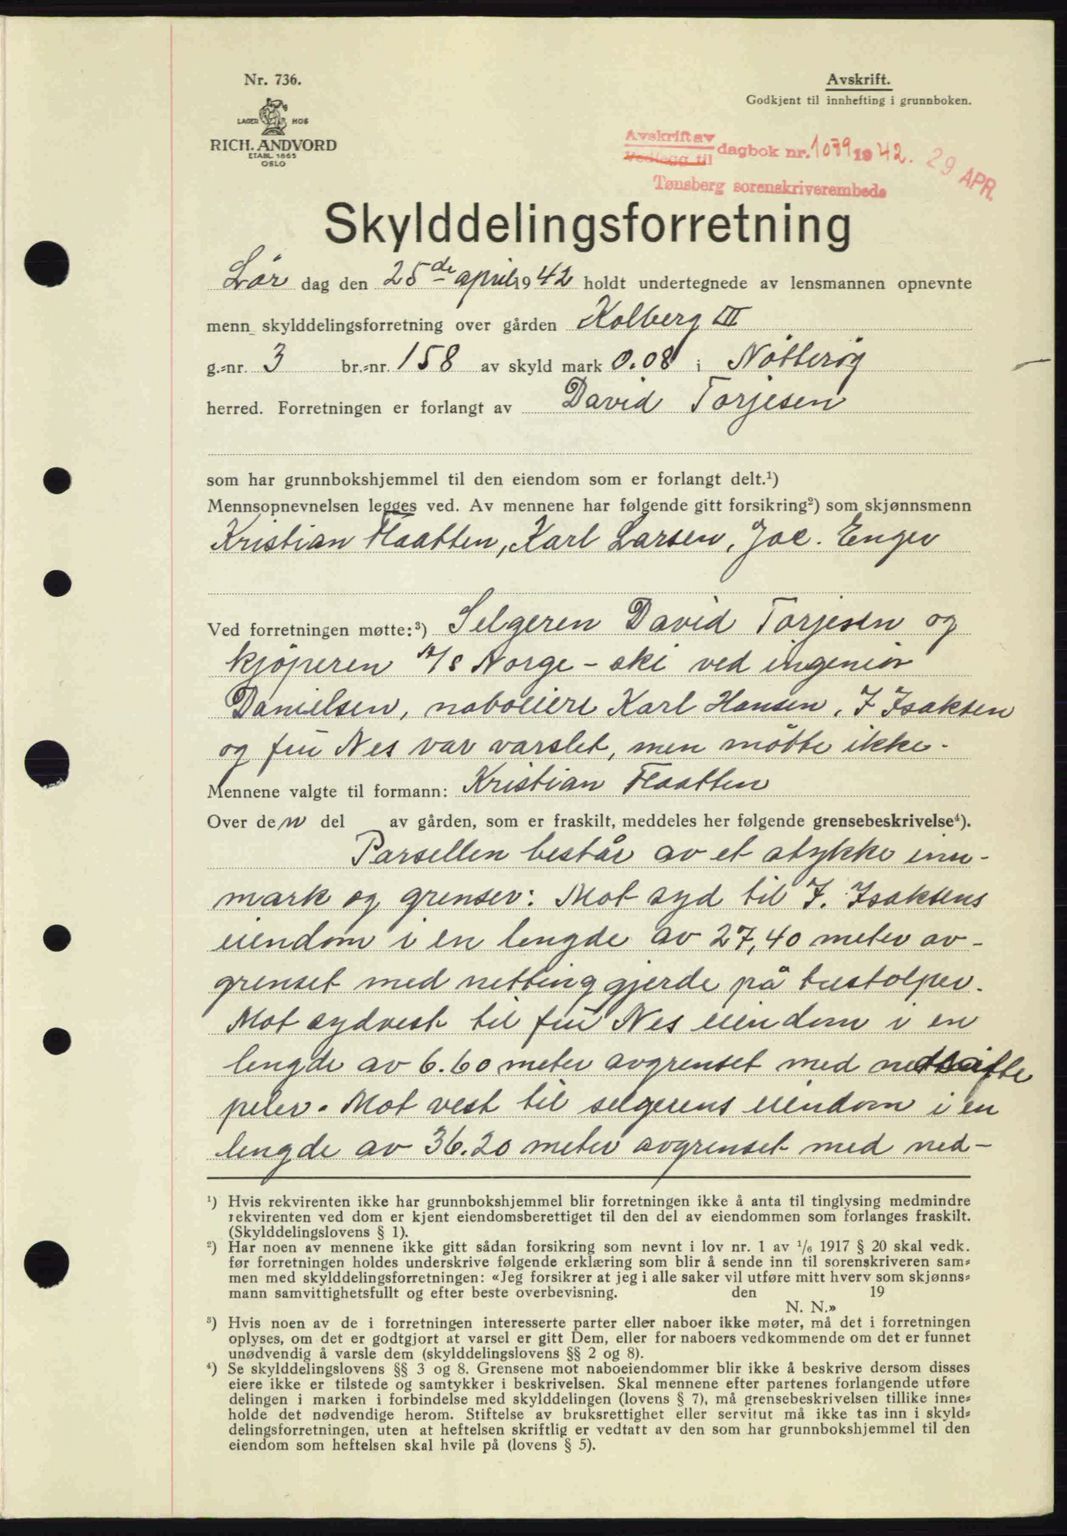 Nr. 736.
LAGER HOS
RICH. ANDVORD
ETABL. 1865
OSLO
Avskrift.
Godkjent til innhefting i grunnboken.
Avskrift av
Vedlegg til dagbok nr. 1079 1942. 29 APR.
Tønsberg sorenskriverembede
Skylddelingsforretning
Lør dag den 25de april 1942 holdt undertegnede av lensmannen opnevnte
menn skylddelingsforretning over gården Kolberg III
g.-nr. 3 br.-nr. 158 av skyld mark 0.08 i Nøtterøy
herred. Forretningen er forlangt av David Torjesen
som har grunnbokshjemmel til den eiendom som er forlangt delt.¹)
Mennsopnevnelsen legges ved. Av mennene har følgende gitt forsikring²) som skjønnsmenn
Kristian Flaatten, Karl Larsen, Jac. Enger
Ved forretningen møtte:³) Selgeren David Torjesen og
kjöperen A/S Norge-ski ved ingeniör
Danielsen, naboeiere Karl Hansen, J Isaksen
og fru Nes var varslet, men mötte ikke.
Mennene valgte til formann: Kristian Flaatten
Over den del av gården, som er fraskilt, meddeles her følgende grensebeskrivelse⁴).
Parsellen består av et stykke inn-
mark og grenser: Mot syd til J. Isaksens
eiendom i en lengde av 27,40 meter av-
grenset med netting gjerde på trestolper.
Mot sydvest til fru Nes eiendom i en
lengde av 6.60 meter avgrenset med nedsatte
peler. Mot vest til selgerens eiendom i en
lengde av 36.20 meter avgrenset med ned-
¹) Hvis rekvirenten ikke har grunnbokshjemmel blir forretningen ikke å anta til tinglysing medmindre
rekvirenten ved dom er kjent eiendomsberettiget til den del av eiendommen som forlanges fraskilt.
(Skylddelingslovens § 1).
²) Har noen av mennene ikke gitt sådan forsikring som nevnt i lov nr. 1 av ¹/₆ 1917 § 20 skal vedk.
før forretningen holdes underskrive følgende erklæring som blir å sende inn til sorenskriveren sam-
men med skylddelingsforretningen: «Jeg forsikrer at jeg i alle saker vil utføre mitt hverv som skjønns-
mann samvittighetsfullt og efter beste overbevisning. den 19
N. N.»
³) Hvis noen av de i forretningen interesserte parter eller naboer ikke møter, må det i forretningen
oplyses, om det er godtgjort at varsel er gitt Dem, eller for naboers vedkommende om det er funnet
unødvendig å varsle dem (skylddelingslovens §§ 2 og 8).
⁴) Se skylddelingslovens §§ 3 og 8. Grensene mot naboeiendommer blir ikke å beskrive dersom disses
eiere ikke er tilstede og samtykker i beskrivelsen. Skal mennene efter partenes forlangende utføre
delingen i marken i forbindelse med skylddelingen (lovens § 7), må grensebeskrivelsen tillike inne-
holde det nødvendige herom. Stiftelse av bruksrettighet eller servitut må ikke tas inn i skyld-
delingsforretningen, uten at heftelsen skriftlig er vedtatt av den som har grunnbokshjemmel til den
eiendom som heftelsen skal hvile på (lovens § 5).